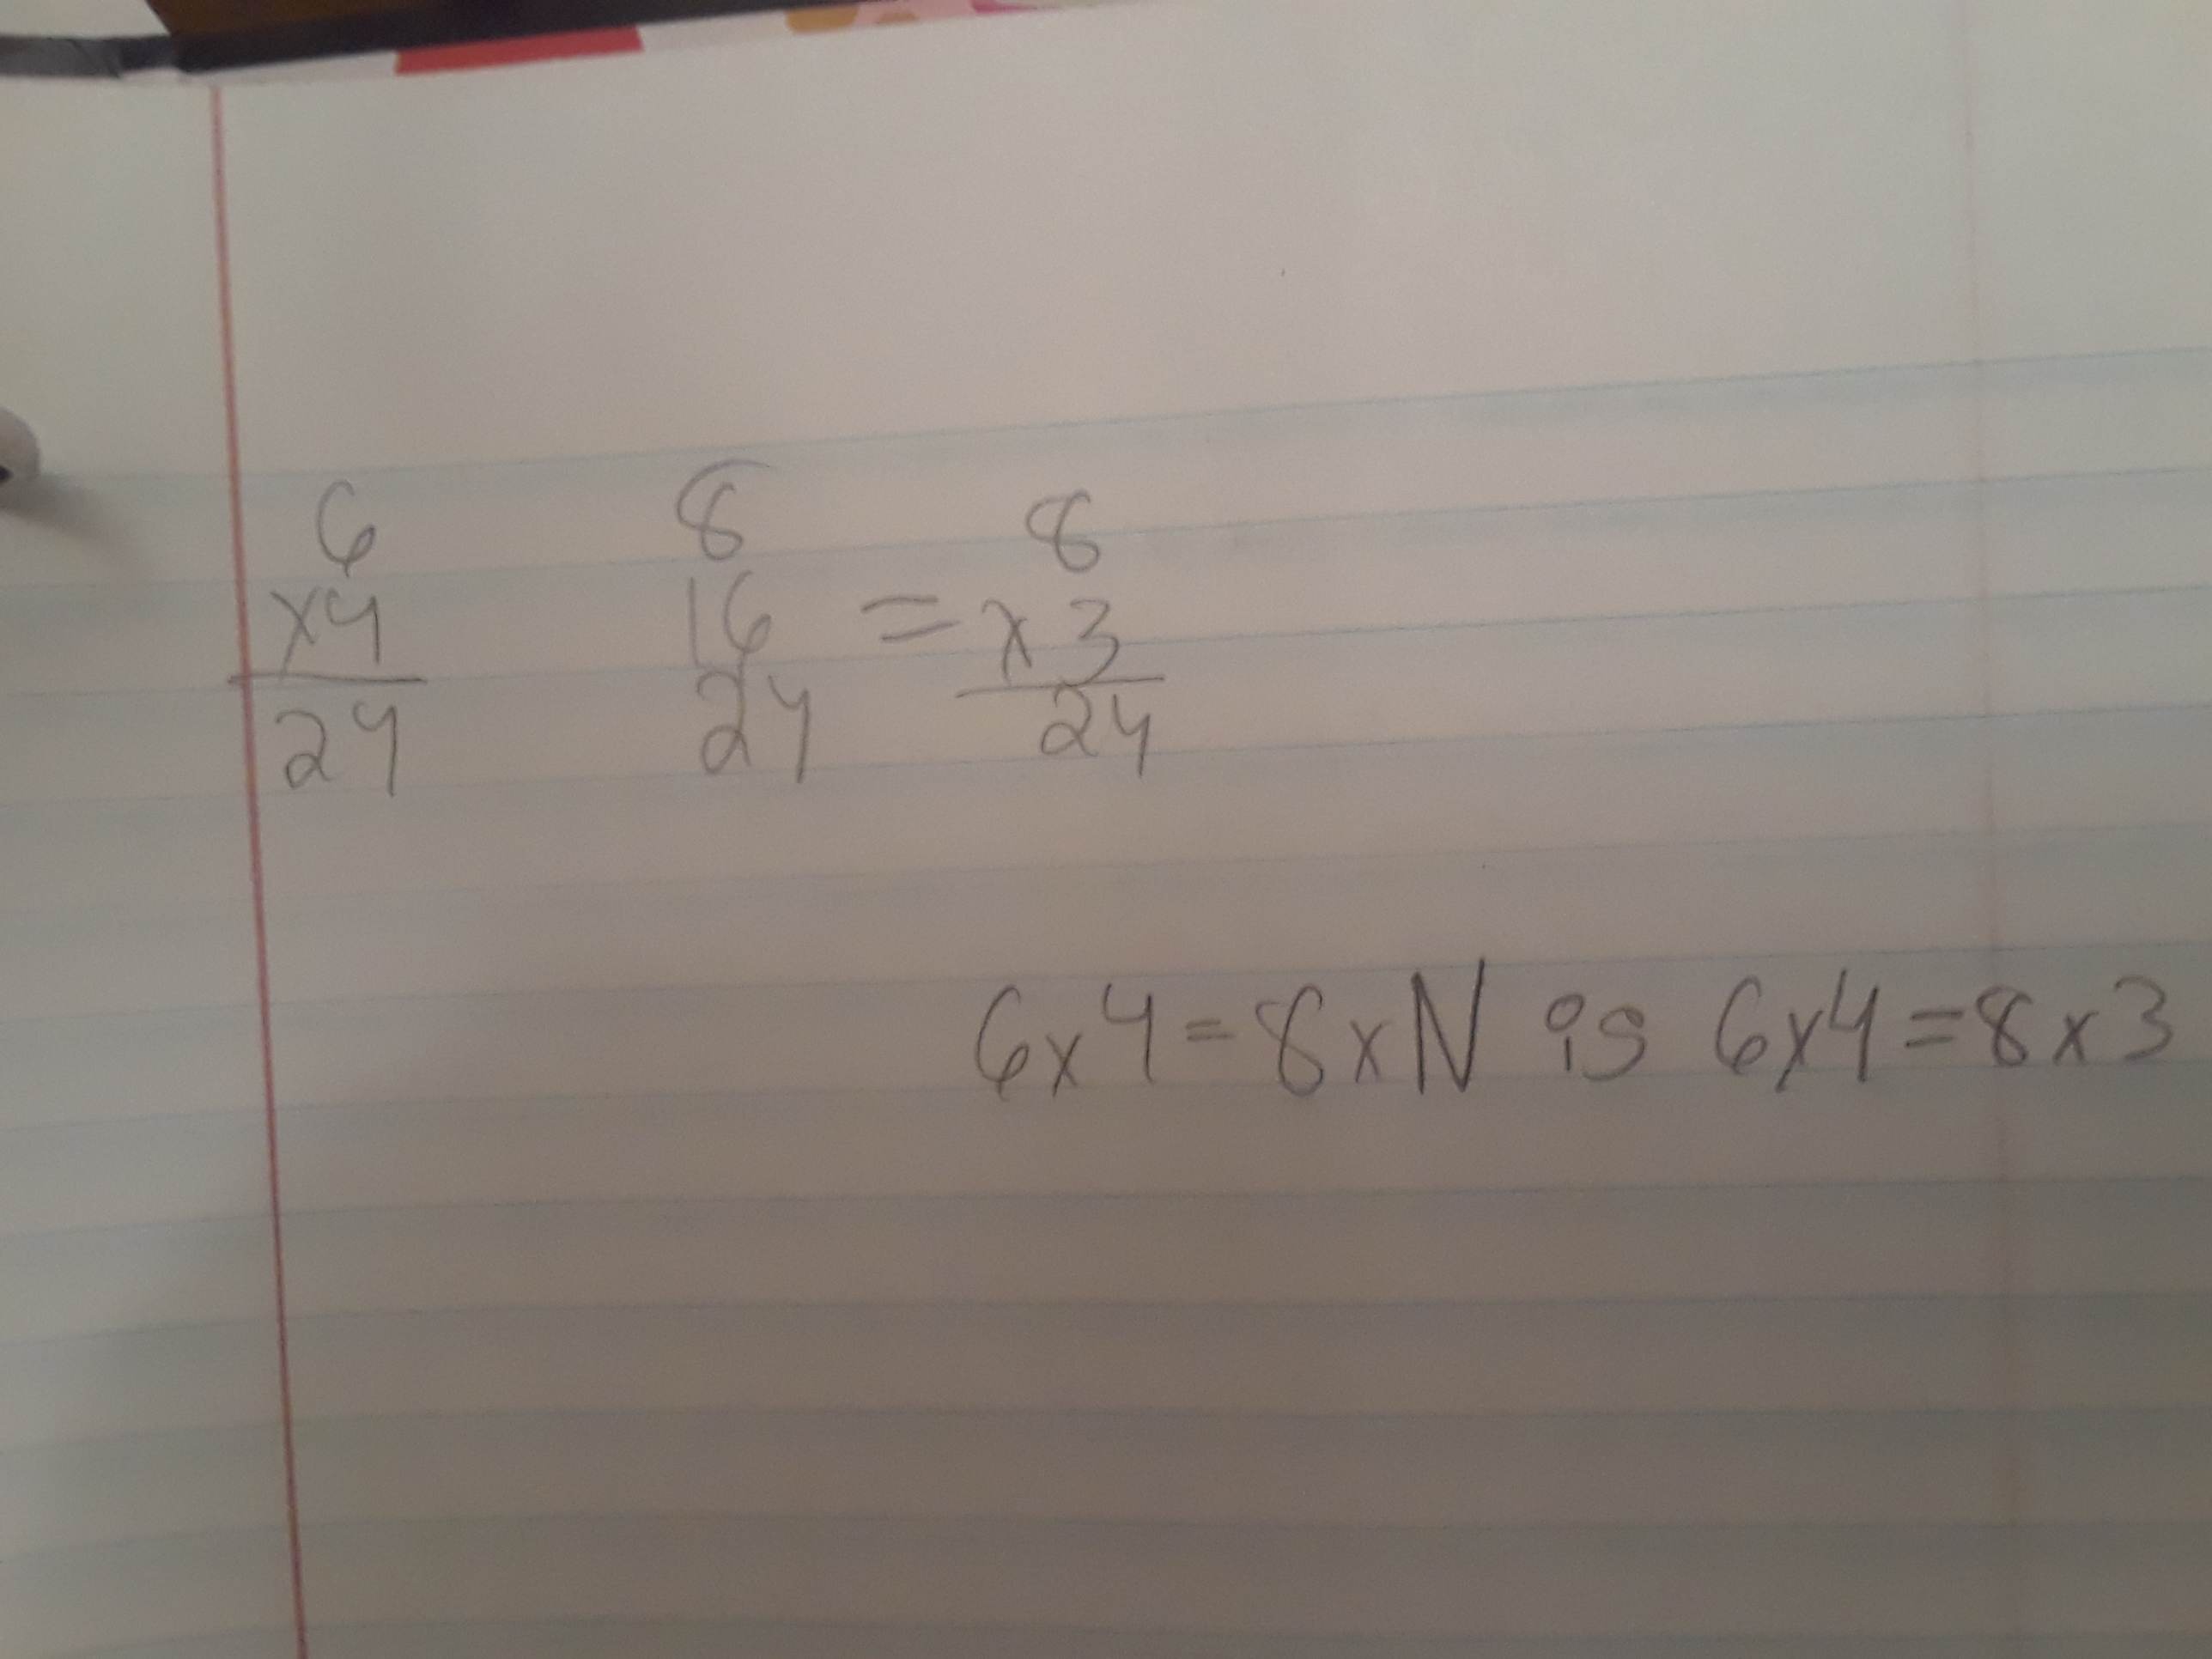 6 8 8
x4 16 = x3
24 24 24
6x4=8xN is 6x4=8x3